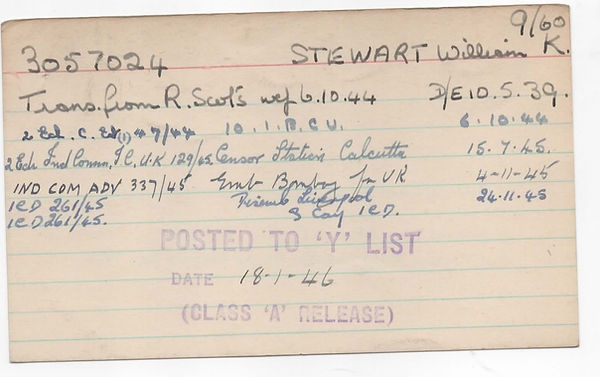 9/60
3057024 STEWART William K.
Trans. from R. Scots wef 6.10.44 D/E 10.5.39.
2 Ech. C. 47/44 10.1.B.C.U. 6.10.44
2 Ech Ind Comm. I C. U.K 129/45 Censor Station Calcutta 15.7.45.
IND COM ADV 337/45 Emb Bombay for UK 4-11-45
ICD 261/45 Disemb Liverpool 24.11.45
ICD 261/45. 3 Coy ICD.
POSTED TO 'Y' LIST
DATE 18-1-46
(CLASS 'A' RELEASE)